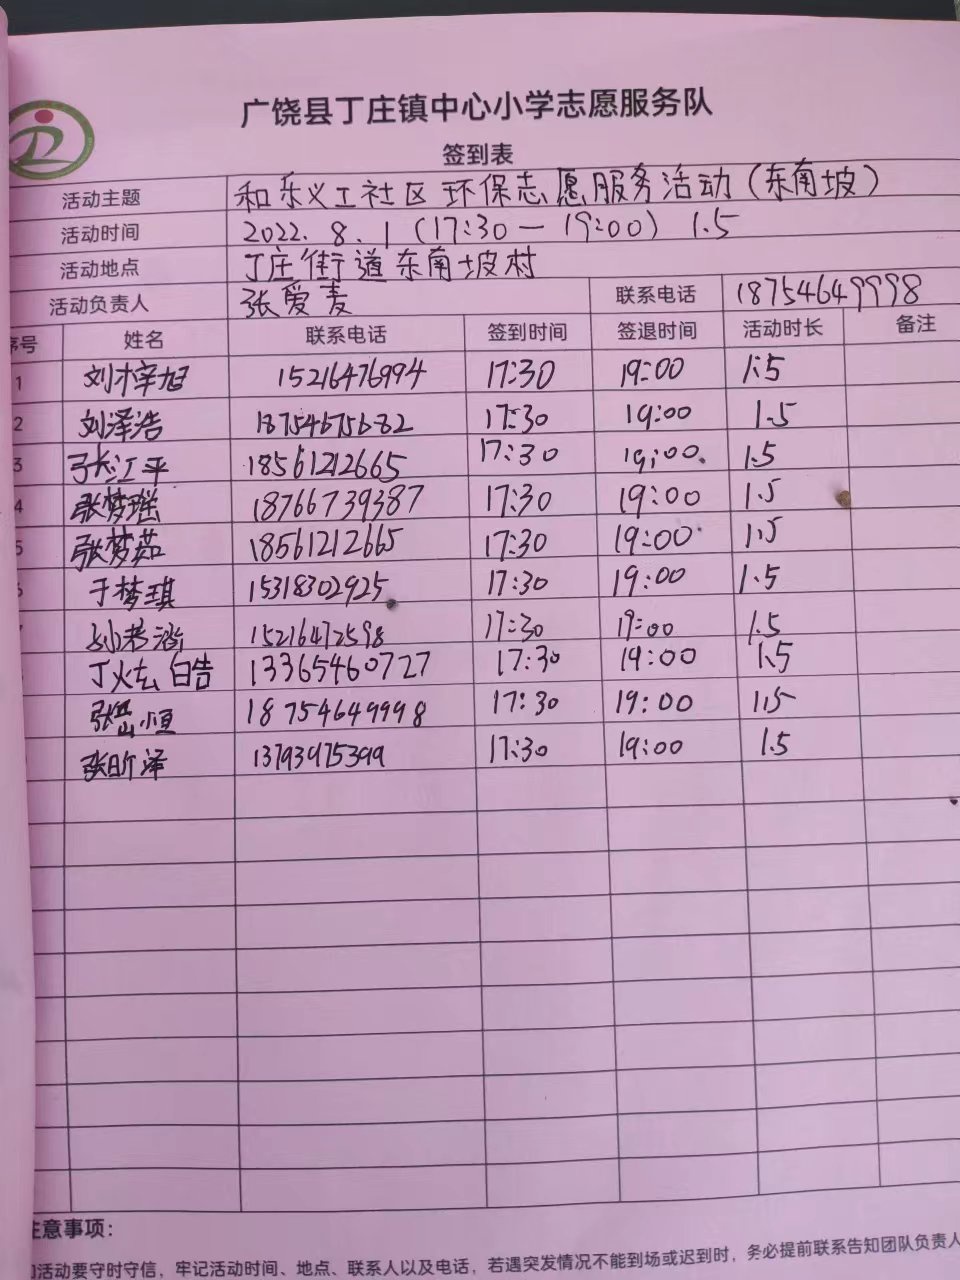 广饶县丁庄镇中心小学志愿服务队
签到表
活动主题 和乐义工社区环保志愿服务活动(东南坡)
活动时间 2022.8.1(17:30—19:00) 1.5
活动地点 丁庄街道东南坡村
活动负责人 张爱麦 联系电话 18754649998
序号 姓名 联系电话 签到时间 签退时间 活动时长 备注
1 刘梓旭 15216476994 17:30 19:00 1.5
2 刘泽浩 18754675682 17:30 19:00 1.5
3 张江平 18561212665 17:30 19:00 1.5
4 张梦瑶 18766739387 17:30 19:00 1.5
5 张梦茹 18561212665 17:30 19:00 1.5
于梦琪 15318302925 17:30 19:00 1.5
刘若涵 15216472598 17:30 19:00 1.5
丁炫皓 13365460727 17:30 19:00 1.5
张恒 18754649998 17:30 19:00 1.5
张昕泽 13793975399 17:30 19:00 1.5
注意事项:
活动要守时守信,牢记活动时间、地点、联系人以及电话,若遇突发情况不能到场或迟到时,务必提前联系告知团队负责人